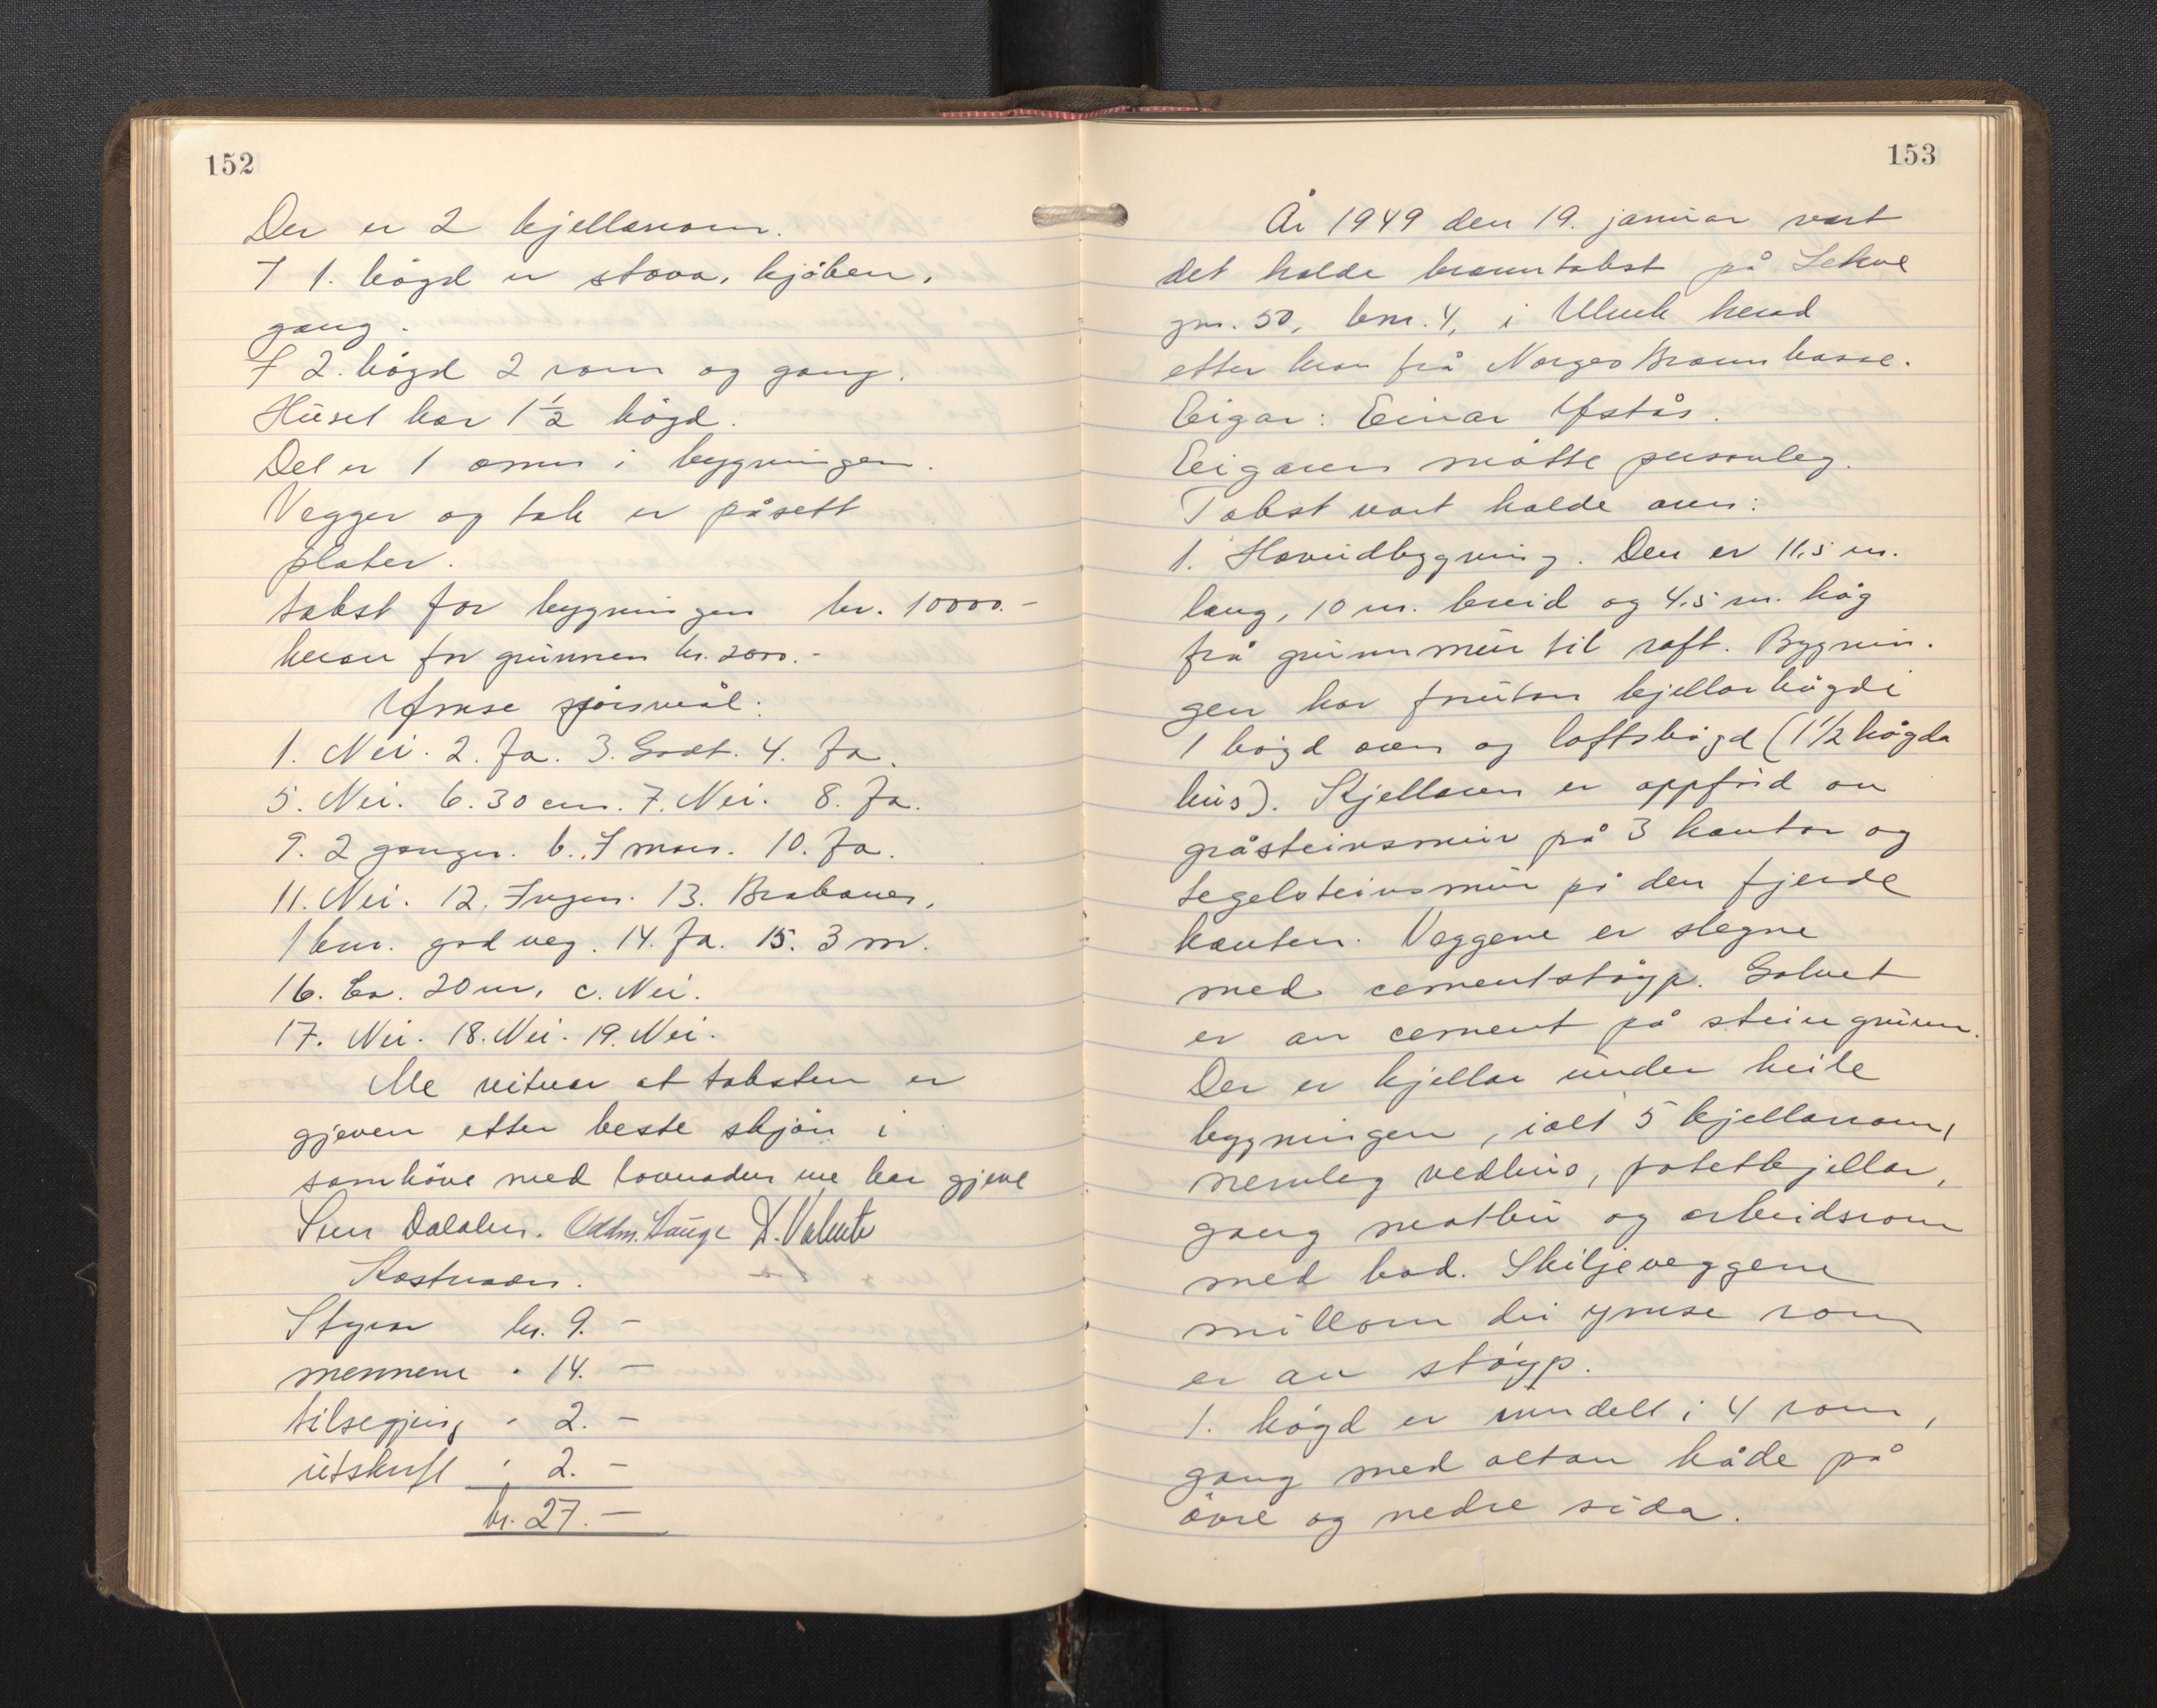 152
Der er 2 kjellarrom.
I 1. høgd er stova, kjøken,
gang.
I 2. høgd 2 rom og gang.
Huset har 1 1/2 høgd.
Det er 1 omn i bygningen.
Vegger og tak er påsett
plater.
takst for bygningen kr. 10000.-
herav for grunnen kr. 2000.-
Ymse spörsmål:
1. Nei. 2. Ja. 3. Godt. 4. Ja.
5. Nei. 6. 30 cm. 7. Nei. 8. Ja.
9. 2 ganger. b. 7 mars. 10. Ja.
11. Nei. 12. Ingen. 13. Brakanes,
1 km. god veg. 14. Ja. 15. 3 m.
16. Ca. 20 m, c. Nei.
17. Nei. 18. Nei. 19. Nei.
Me vitnar at taksten er
gjeven etter beste skjön i
samhöve med lovnaden me har gjeve
Sven Dalalen.
Kostnaden.
Styrar kr. 9. -
mennene " 14. -
tilsegjing " 2. -
utskrift " 2. -
kr. 27. -
153
År 1949 den 19. januar vart
det halde branntakst på Lekve
gnr. 50, bnr. 4, i Ulvik herad
etter krav frå Norges Brannkasse.
Eigar: Einar Ystås.
Eigaren møtte personleg.
Takst vart halde over:
1. Hovudbygning. Den er 11,5 m.
lang, 10 m. breid og 4.5 m. høg
frå grunnmur til raft. Bygnin-
gen har frutan kjellarhøgdi
1 høgd over og loftshøgd (1 1/2 høgda
hus). Kjellaren er oppförd av
gråsteinsmur på 3 kantar og
tegelsteinsmur på den fjerde
kanten. Veggene er slegne
med cementstöyp. Golvet
er av cement på steingrunn.
Der er kjellar under heile
bygningen, ialt 5 kjellarrom,
nemleg vedhus, potetkjellar,
gang matbu og arbeidsrom
med bad. Skiljeveggene
millom dei ymse rom
er av støyp.
1. høgd er inndelt i 4 rom,
gang med altan både på
övre og nedre sida.